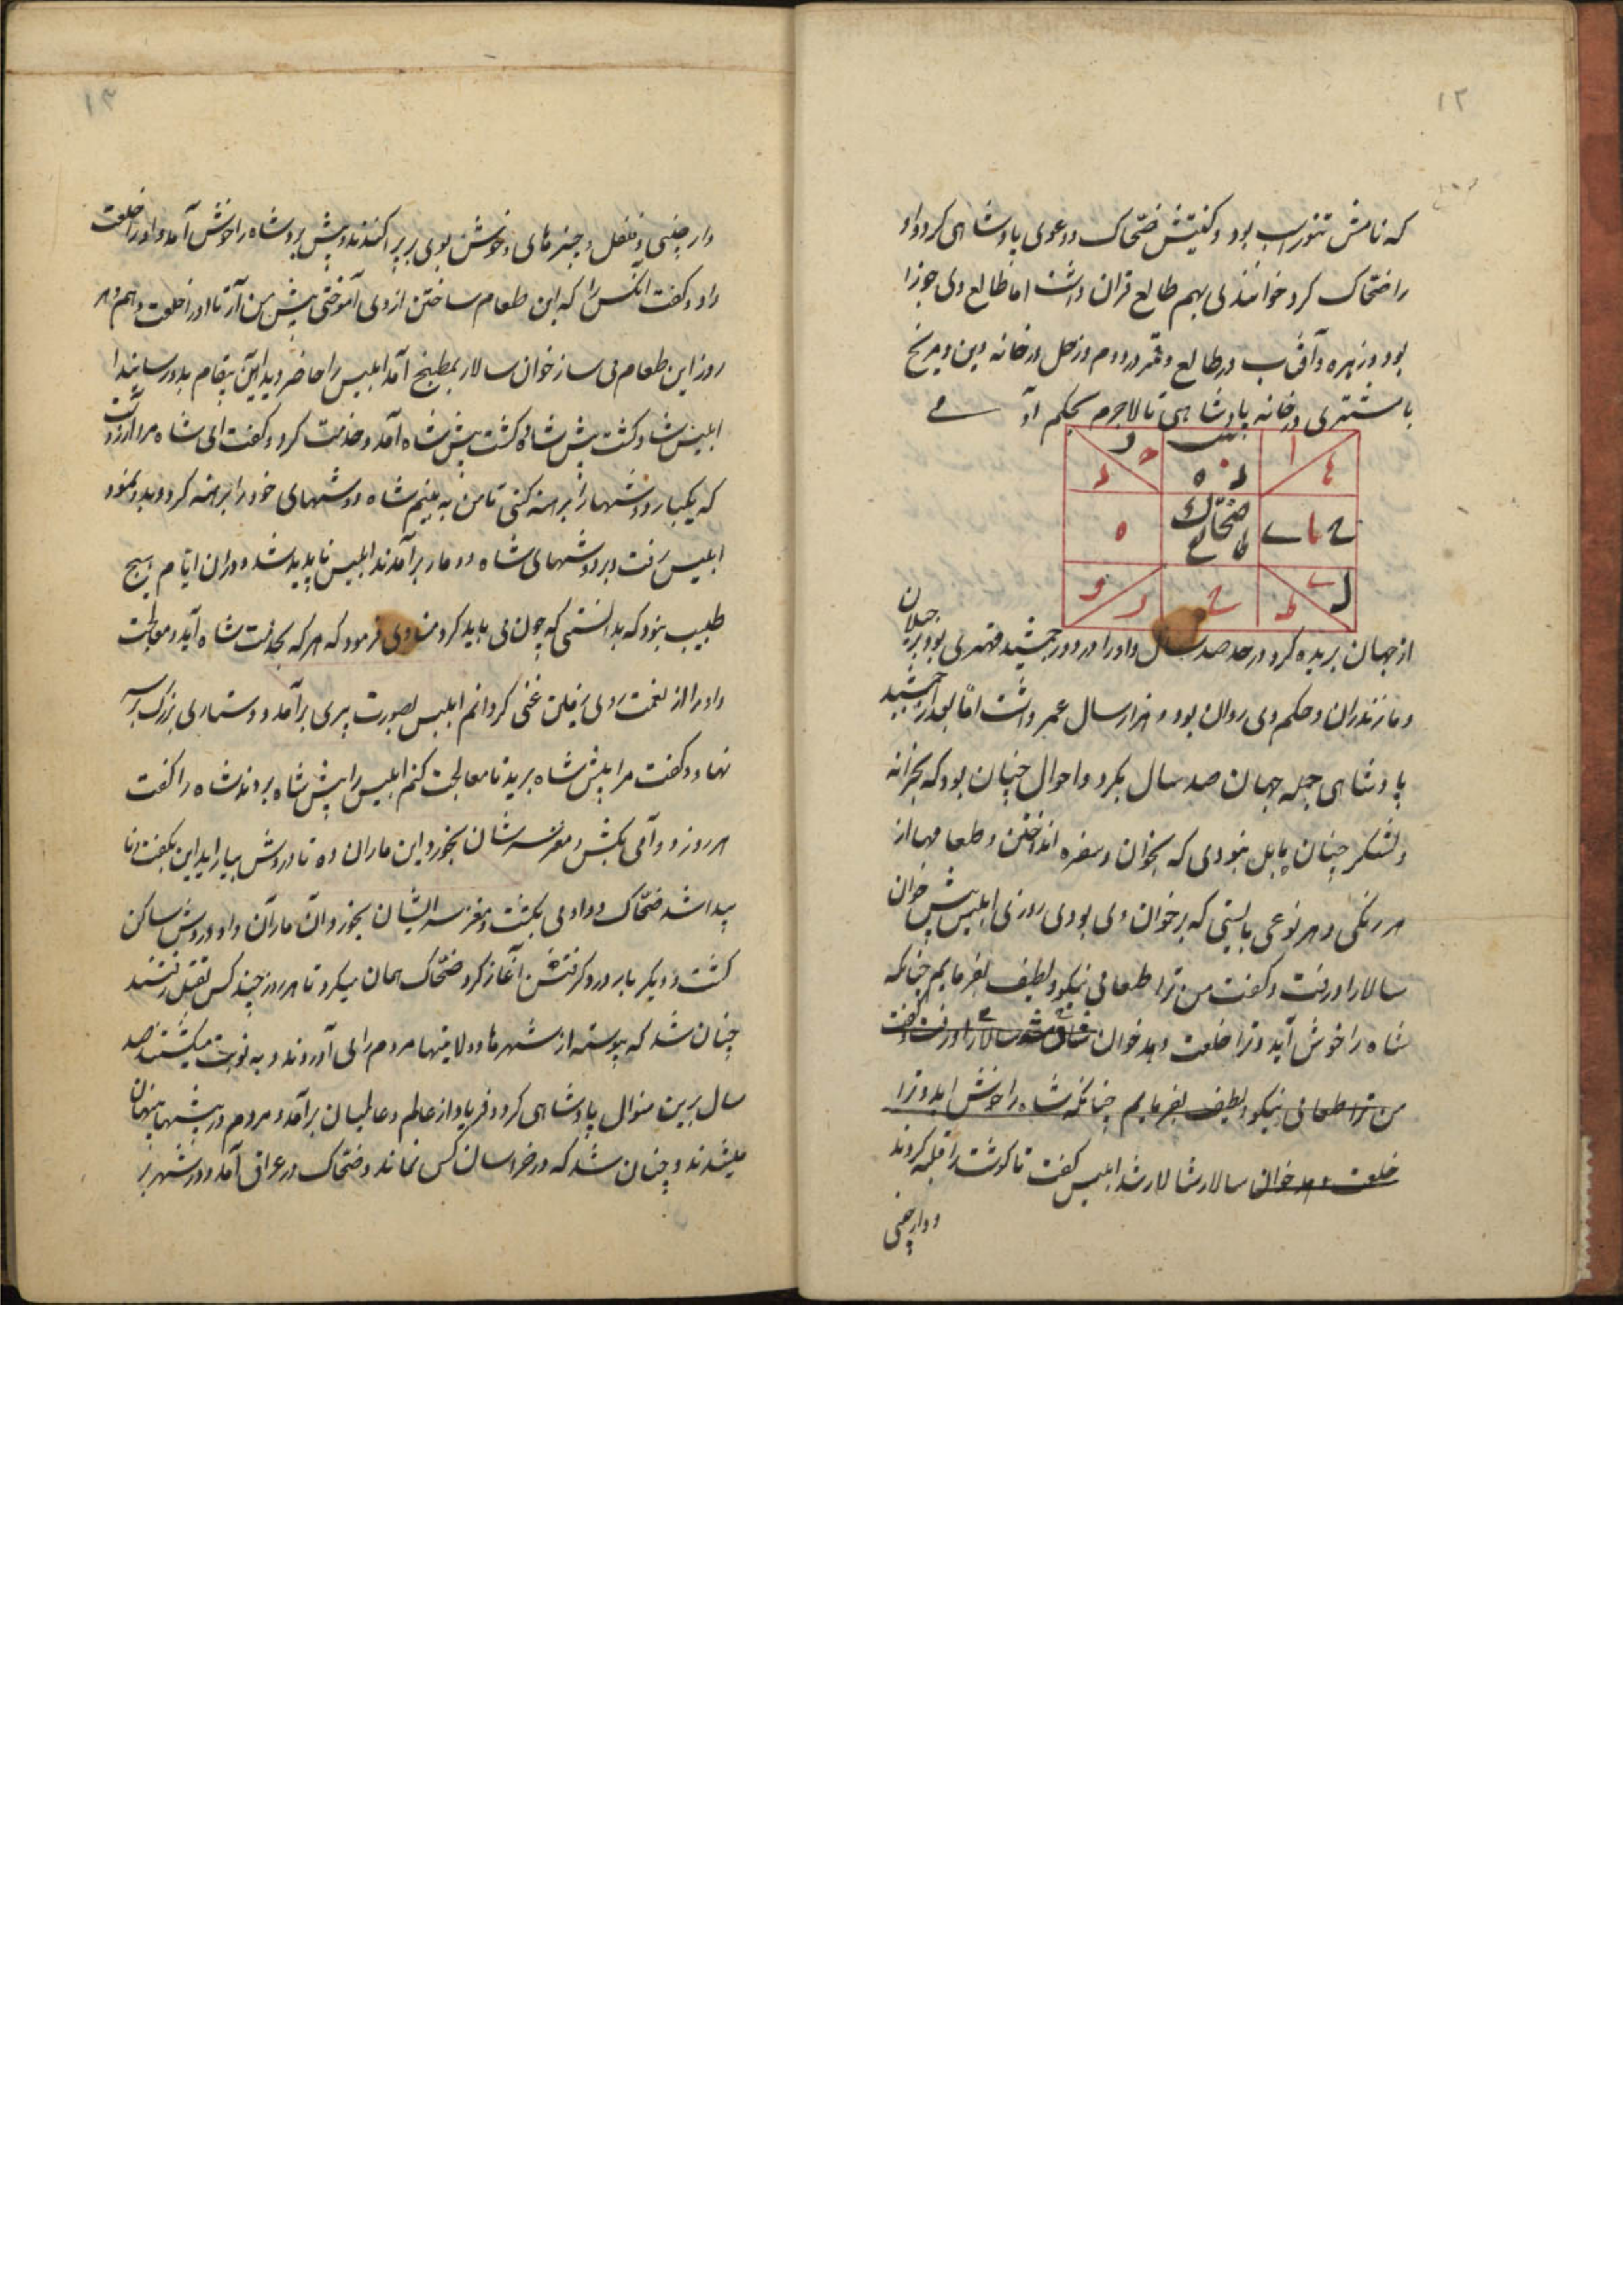 ۱۲
که نامش تنوراسب بود و کنیتش ضحّاک و دعوی پادشاهی کرد و او
را ضحّاک کرد خوانندی بهم طالع قران داشت اما طالع وی جوزا
بود و زهره و آفتاب در طالع و قمر در دوم و زحل در خانه دین و مریخ
با مشتری در خانه پادشاهی تا لاجرم بحکم آ
ضحّاک
طالع
از جهان بریده کرد در حد صد سال و او را در دور جمشید مهتری بود بر جیلان
و مازندران و حکم وی روان بود و هزار سال عمر داشت امّا بعد از جمشید
پادشاهی جمله جهان صد سال بکرد و احوال چنان بود که بخزانه
و لشکر چنان مایل نبودی که بخوان و سفره انداختن و طعامها از
هر رنگی و هر نوعی بایستی که بر خوان وی بودی روزی ابلیس پیش خوان
سالار او رفت و گفت من ترا طعامی نیکو و لطیف بفرمایم چنانکه
شاه را خوش آید و ترا خلعت دهد خوان سالار او رفت و گفت
من ترا طعامی نیکو و لطیف بفرمایم چنانکه شاه را خوش اید و ترا
خلعت دهد خوان سالار شاد شد ابلیس گفت تا گوشت را قلیه کردند
و دارچینی
۱۳
دارچینی و فلفل و چیزهای خوش بوی بر پراکندند و پیش برد شاه را خوش آمد و او را خلعت
داد و گفت آنکس را که این طعام ساختن از وی آموختی پیش من آر تا او را خلعت دهم و هر
روز این طعام می ساز خوان سالار بمطبخ آمد ابلیس را حاضر دید این پیغام بدو رسانید
ابلیس شاد گشت پیش شاه آمد و خدمت کرد و گفت ای شاه مرا آرزوست
که یکبار دوشها را برهنه کنی تا من به بینم شاه دوشهای خود را برهنه کرد و بدو نمود
ابلیس رفت و بر دوشهای شاه دو مار برآمدند ابلیس ناپدید شد و دران ایّام هیچ
طبیب نبود که بدانستی که چون می باید کرد منادی فرمود که هر که بخدمت شاه آید و معالجت
و او را از نعمت روی زمین غنی گردانم ابلیس بصورت پیری برآمد و دستاری بزرگ بر سر
نهاد و گفت مرا پیش شاه برید تا معالجت کنم ابلیس را پیش شاه بردند شاه را گفت
هر روز دو آدمی بکش و مغز سرشان بخورد این ماران ده تا دردش بیاراید این بگفت و نا
پیدا شد ضحّاک دو آدمی بکشت و مغز سر ایشان بخورد آن ماران داد و دردش ساکن
گشت و دیگر بار درد گرفتش آغاز کرد ضحّاک همان میکرد تا هر روز چند کس بقتل رفتند
چنان شد که پیوسته از شهرها و ولایتها مردم را می آوردند و به نوبت میکشتند صد
سال برین منوال پادشاهی کرد و فریاد از عالم و عالمیان برآمد و مردم در بیشها پنهان
میشدند و چنان شد که در خراسان کس نماند و ضحّاک در عراق آمد و در شهر